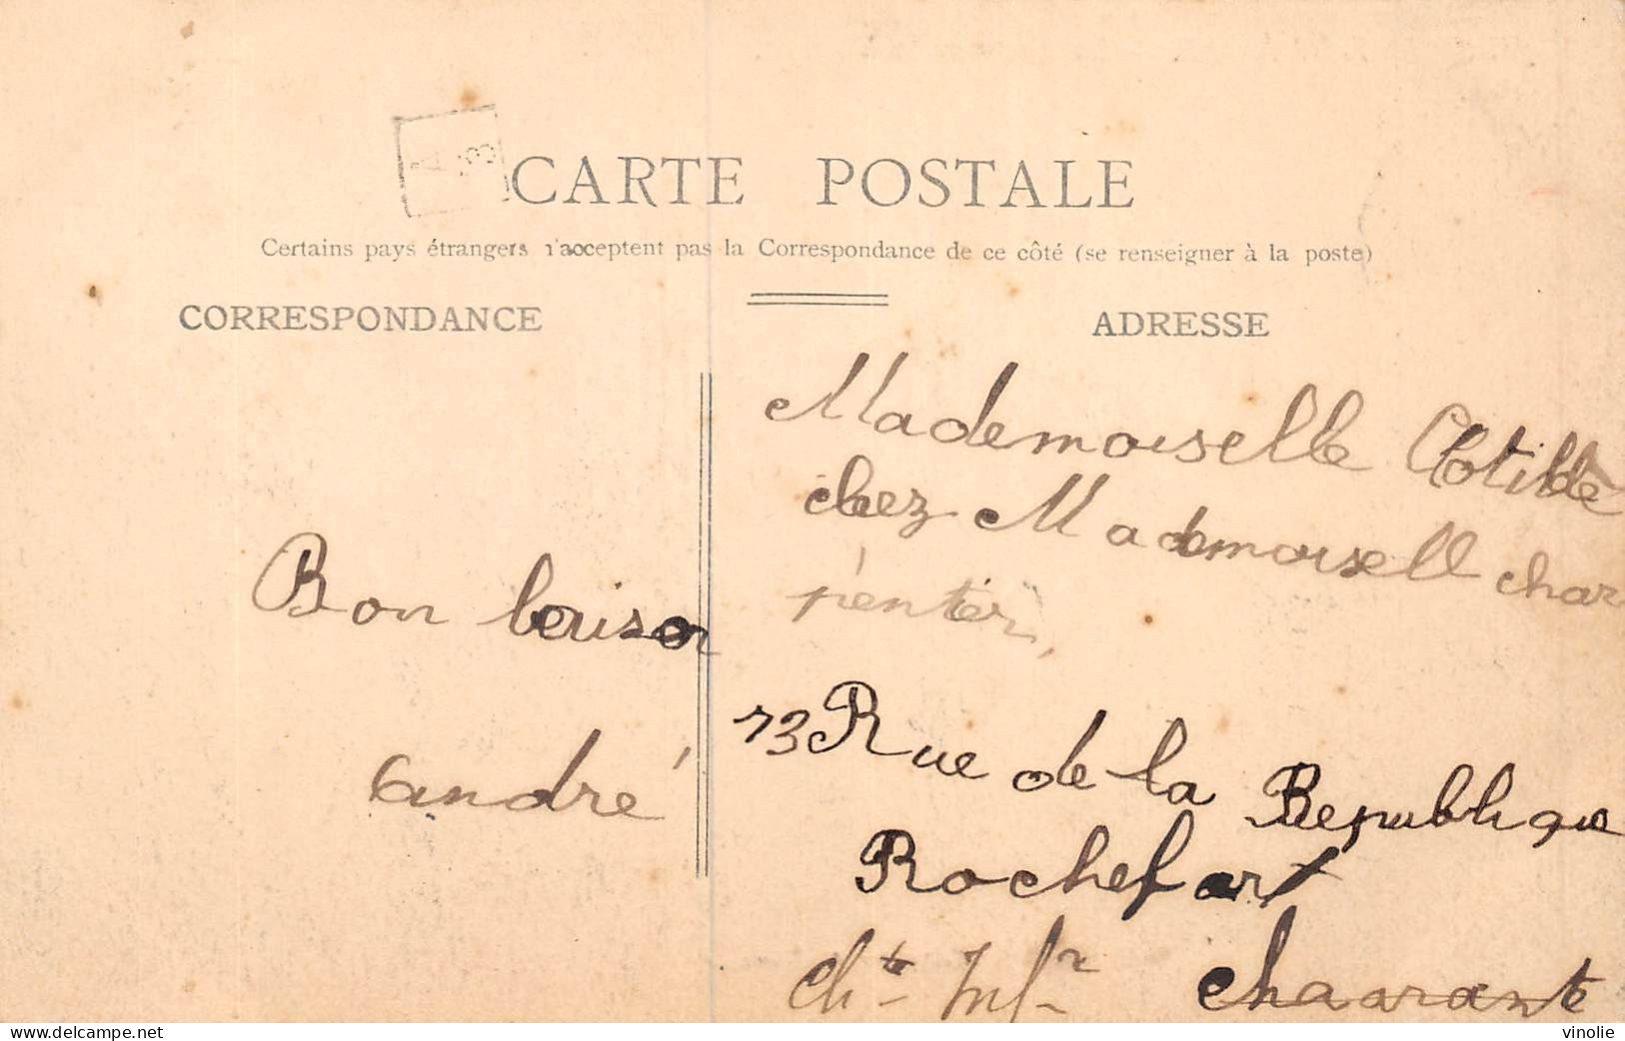 CARTE POSTALE
Certains pays étrangers n'acceptent pas la Correspondance de ce côté (se renseigner à la poste)
CORRESPONDANCE
ADRESSE
Bon
andré
Mademoiselle Clotilde
chez Mademoisell char
pentier,
73 Rue de la Republique
Rochefort
Ch.te Inf.r Chaarante
vinolie
www.delcampe.net